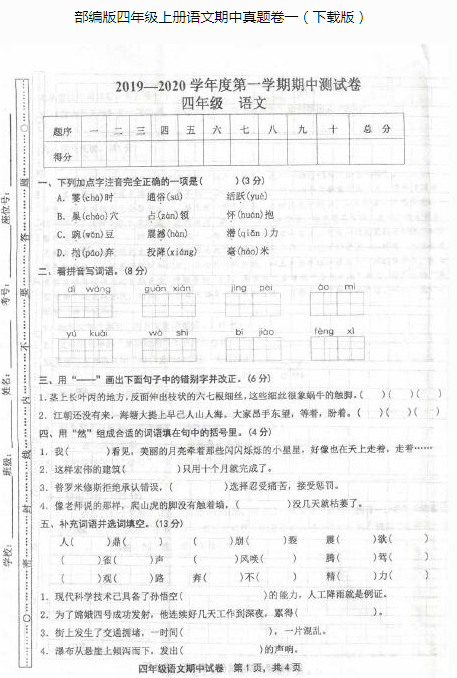 部编版四年级上册语文期中真题卷一（下载版）
2019—2020 学年度第一学期期中测试卷
四年级 语文
题序 一 二 三 四 五 六 七 八 九 十 总 分
得分
一、下列加点字注音完全正确的一项是( )(3 分)
A．霎(chà)时 通俗(sú) 活跃(yuè)
B．巢(cháo)穴 占(zàn)领 怀(huán)抱
C．豌(wān)豆 震撼(hàn) 潜(qiǎn )力
D．抛(pāo)弃 投降(xiáng) 毫(háo)米
二、看拼音写词语。(8 分)
dī wàng guān xián jīng pèi áo mì
yú kuài wò shì bǐ jiào fèng xì
三、用“——”画出下面句子中的错别字并改正。(6 分)
1.茎上长叶丙的地方,反面钟出枝状的六七根细丝,这些细丝很象蜗牛的触脚。( )( )( )
2．江朝还没有来，海塘大提上早已人山人海。大家昂手东望，等着，盼着。( )( )( )
四、用“然”组成合适的词语填在句中的括号里。(4 分)
1．我( )看见，美丽的月亮牵着那些闪闪烁烁的小星星，好像也在天上走着，走着……
2．这样宏伟的建筑( )只用十个月就完成了。
3．普罗米修斯拒绝承认错误，( )选择忍受痛苦，接受惩罚。
4．像老师说的那样，爬山虎的脚没有触着墙，( )没几天就枯萎了。
五、补充词语并选词填空。(13 分)
人( )鼎( ) ( )崩( )裂 震( )欲( )
( )雀( )声 ( )风唤( ) 腾( )驾( )
( )观( )路 奔( )不( ) 精( )力( )
1．现代科学技术已具备了孙悟空( )的能力，人工降雨就是例证。
2．为了嫦娥四号成功发射，他连续好几天工作到深夜，累得( )。
3．街上发生了交通拥堵，一时间( )，一片混乱。
4．瀑布从悬崖上倾泻而下，发出( )的声响。
四年级语文期中试卷 第 1 页，共 4 页
学校： 班级： 姓名： 考号： 座位号：
密 封 线 内 不 要 答 题